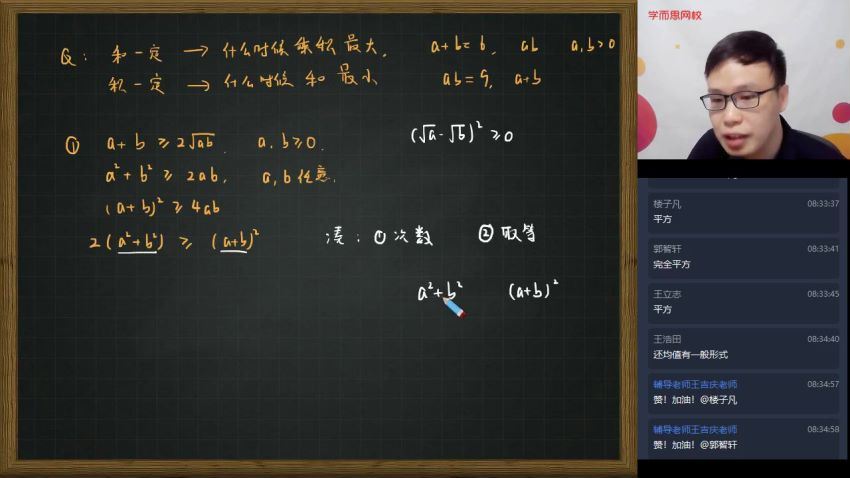 Q: 和一定 → 什么时候乘积最大, a+b=6, ab a,b>0
积一定 → 什么时候和最小 ab=9, a+b
① a+b ≥ 2√ab, a,b≥0. (√a-√b)² ≥0
a²+b² ≥ 2ab, a,b任意.
(a+b)² ≥ 4ab
2(a²+b²) ≥ (a+b)² 凑: ①次数 ②取等
a²+b² (a+b)²
学而思网校
楼子凡 08:33:37
平方
郭智轩 08:33:41
完全平方
王立志 08:33:45
平方
王浩田 08:34:40
还均值有一般形式
辅导老师王吉庆老师 08:34:57
赞！加油！@楼子凡
辅导老师王吉庆老师 08:34:58
赞！加油！@郭智轩